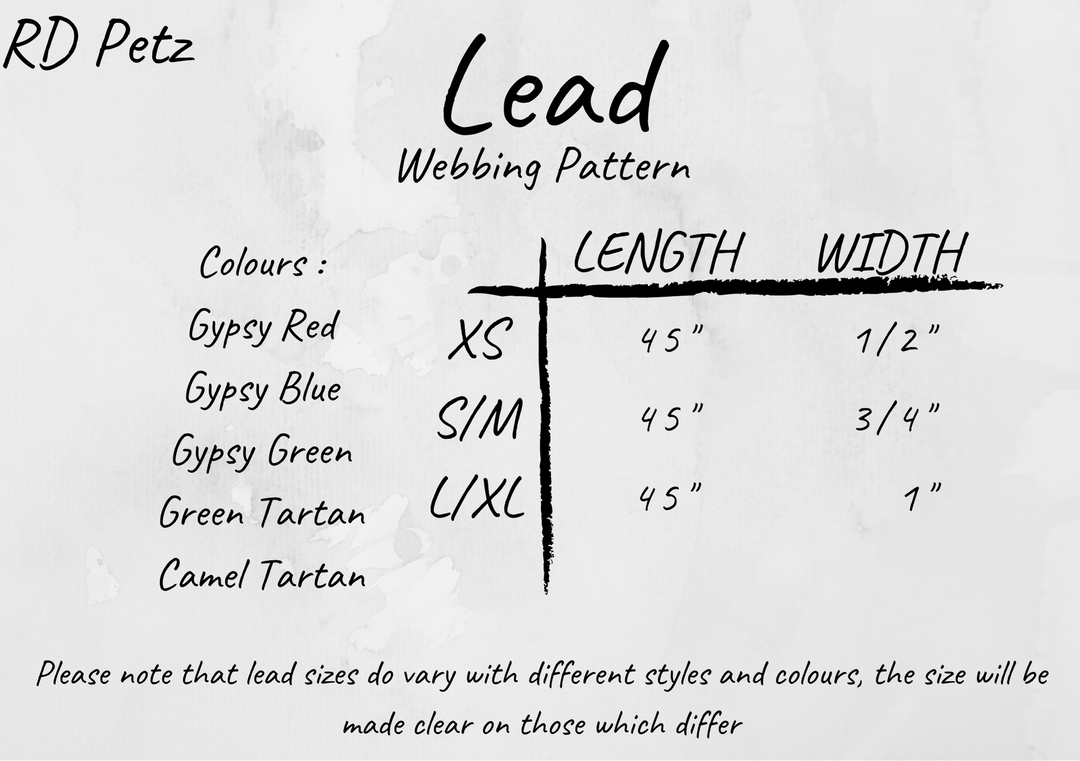 RD Petz
Lead
Webbing Pattern
Colours :
Gypsy Red
Gypsy Blue
Gypsy Green
Green Tartan
Camel Tartan
LENGTH WIDTH
XS 45" 1/2"
S/M 45" 3/4"
L/XL 45" 1"
Please note that lead sizes do vary with different styles and colours, the size will be
made clear on those which differ